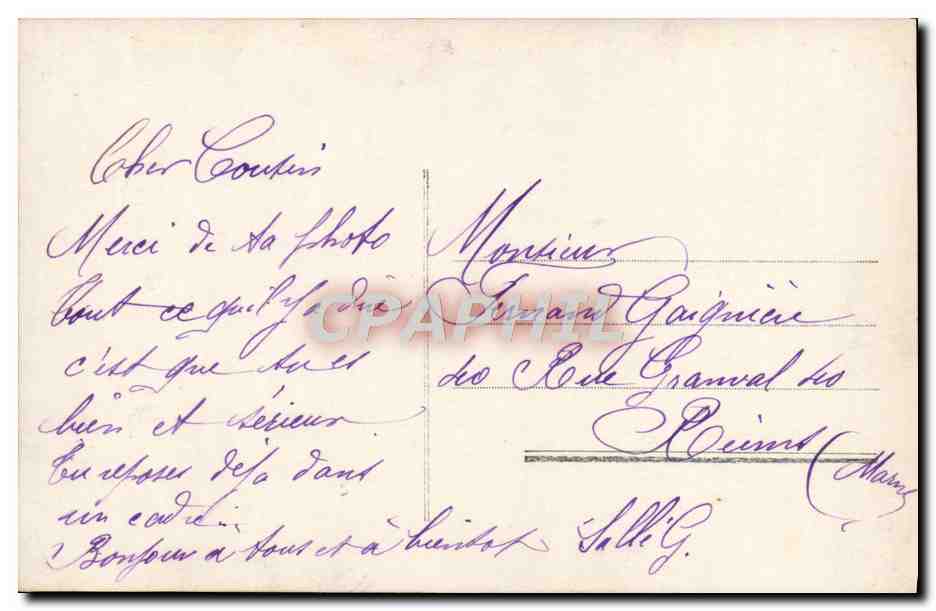 Cher Cousin
Merci de ta photo
tout ce qu'il y a dire
c'est que tu es
bien et sérieux
tu reposes déjà dans
un cadre...
Bonjour à tous et à bientot
Sallé G.
Monsieur
Fernand Gaignière
40 Rue Granval 40
Reims
(Marne
CPAPHIL